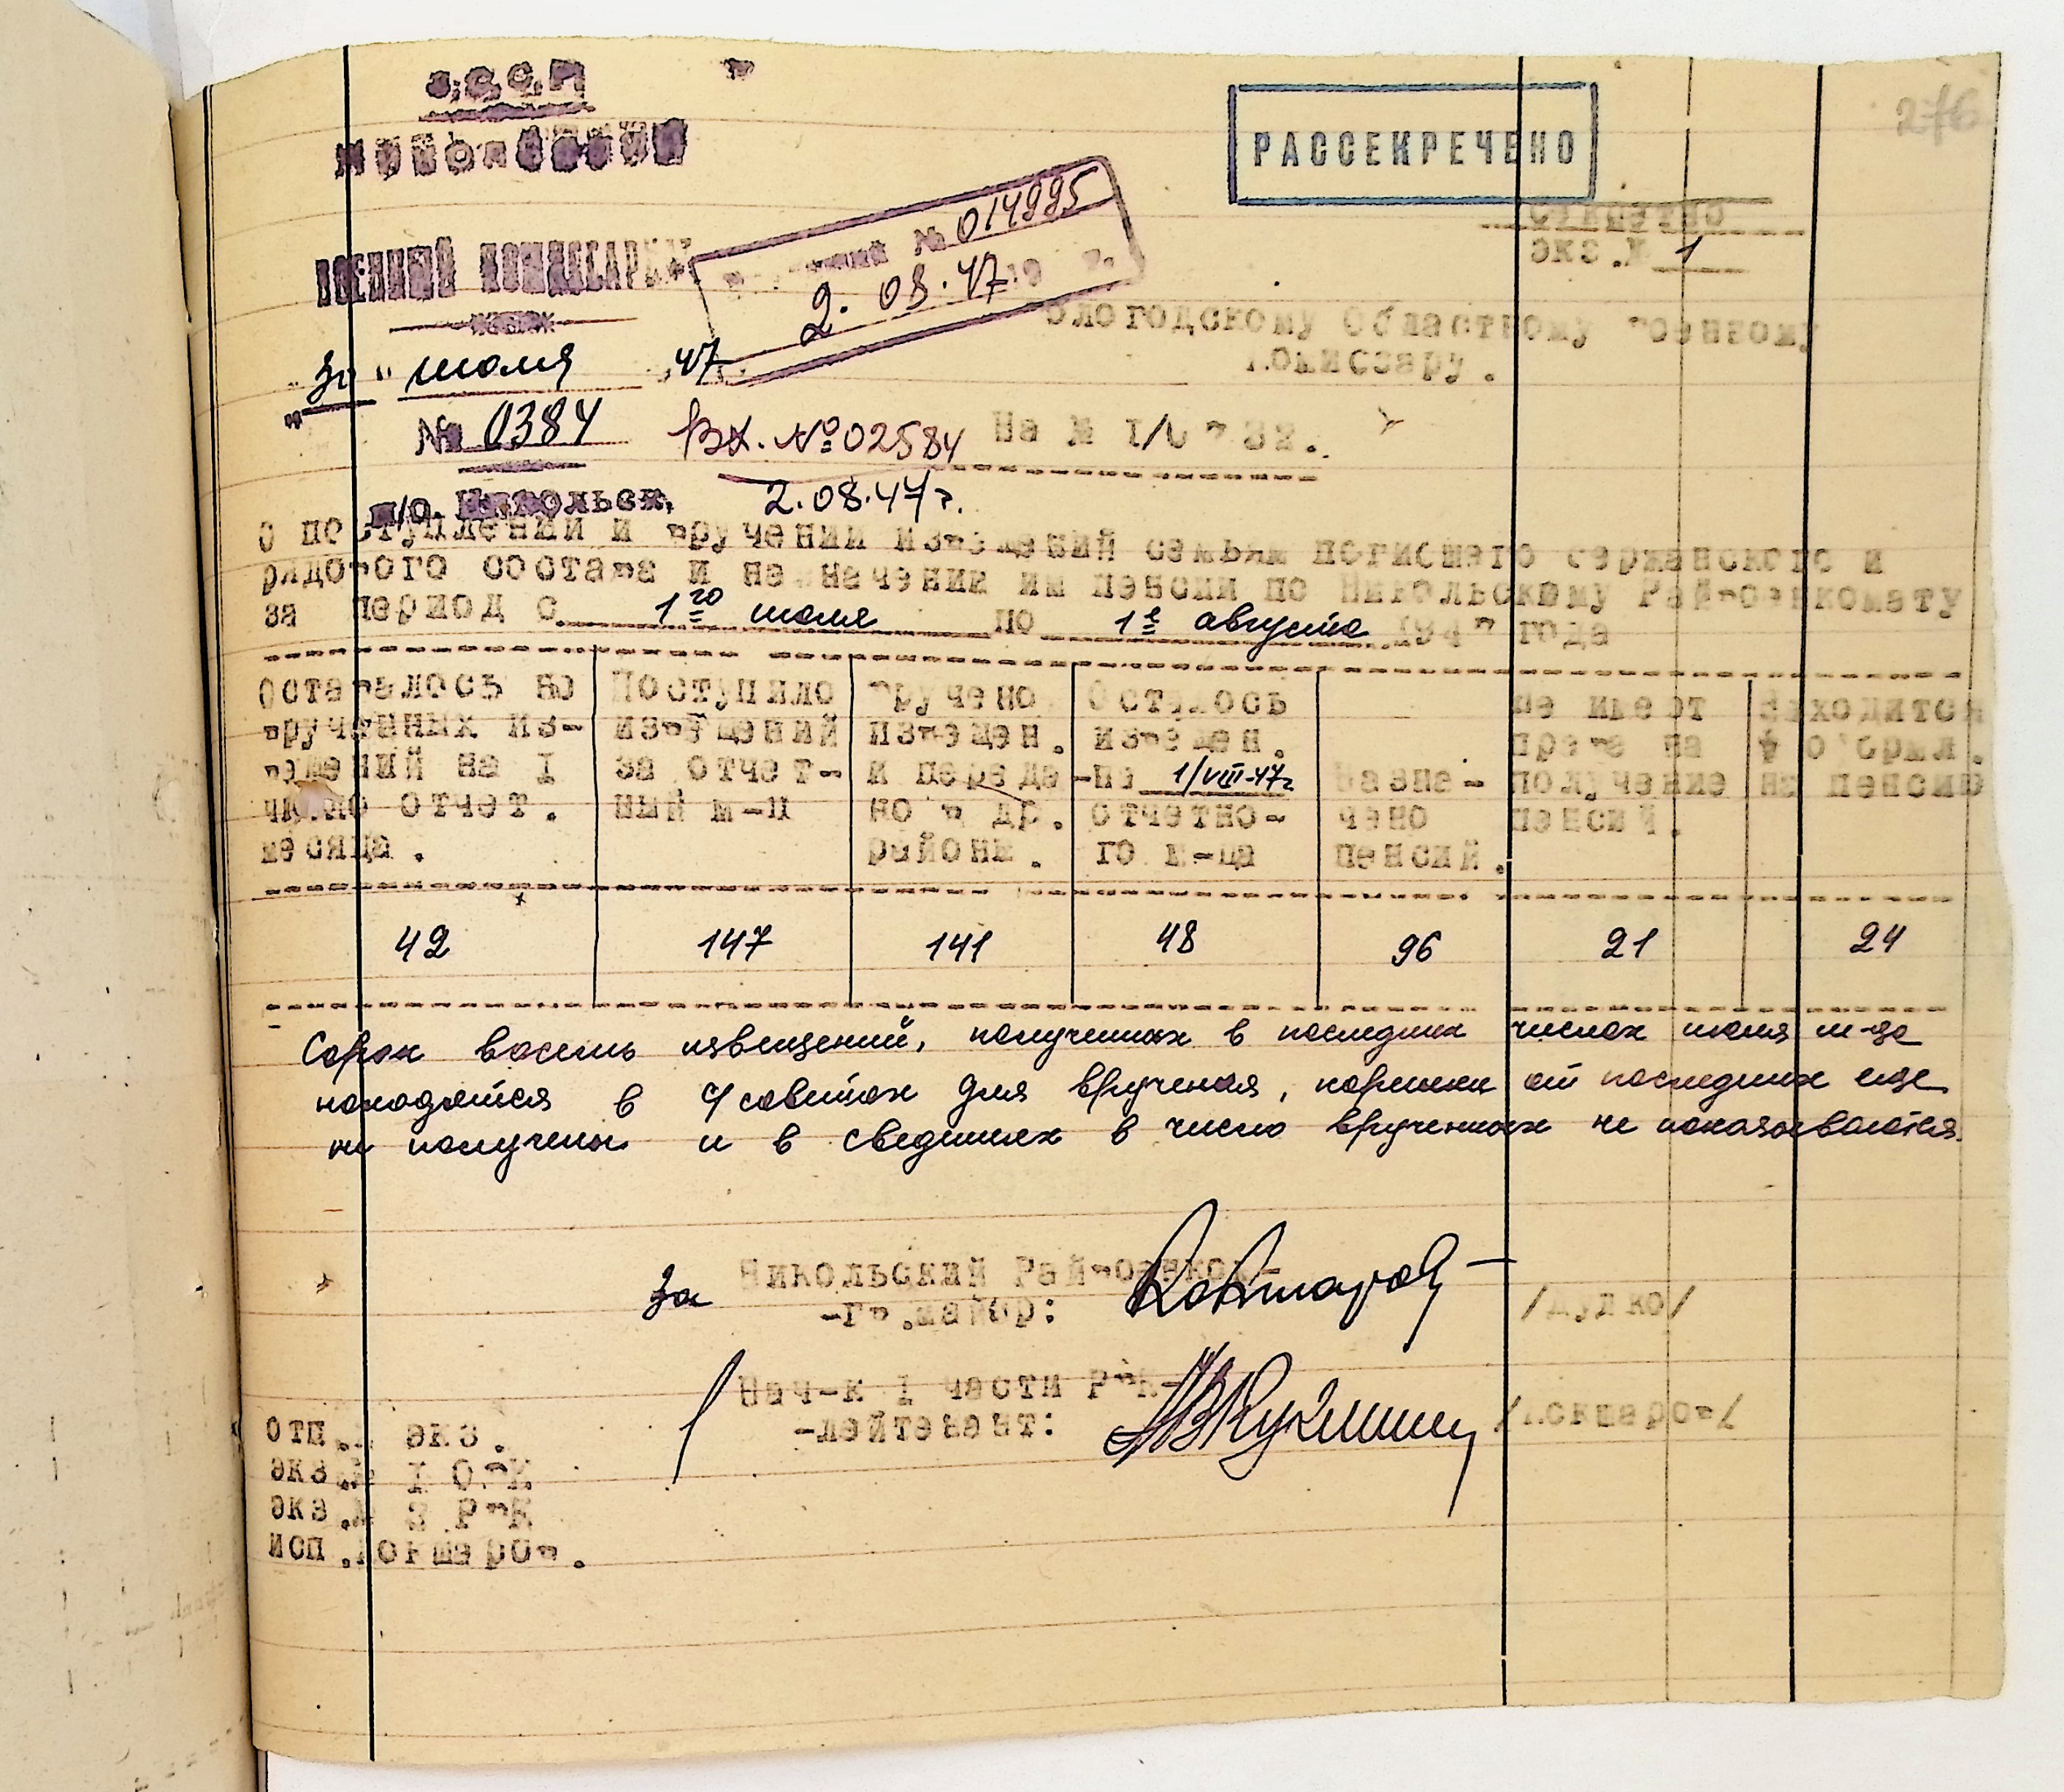 276
РАССЕКРЕЧЕНО
Секретно
экз.№ 1
ВОЕННЫЙ КОМИССАРИАТ
№ 014995
2. 08. 47 19 г.
Вологодскому Областному Военному
Комиссару.
"30" июля 47
№ 0384
Вх. № 02584
2.08.47г.
На № I/0
п/о. Никольск,
О поступлении и вручении извещений семьям погибшего сержанского и
рядового состава и назначении им пенсии по Никольскому Райвоенкомату
за период с 1го июля по 1е августа 1947 года
Оставалось не врученных извещений на I число отчет. месяца.
Поступило извещений за отчетный м-ц
Вручено извещен. и передано в др. районы.
Осталось извещен. на 1/VIII-47г отчетного м-ца
Назначено пенсий.
Не имеет права на получение пенсий.
Находится в оформл. на пенсию
42 147 141 48 96 21 24
Сорок восемь извещений, полученных в последних числах июля м-ца
находятся в с/советах для вручения, корешки от последних еще
не получены и в сведениях в число врученных не показываются.
За Никольский Райвоенком-
-Гв.майор: /Дудко/
Нач-к I части РВК-
-лейтенант: /Кокшаров/
Отп. экз.
экз.№ I ОВК
экз.№ 2 РВК
исп.Кокшаров.